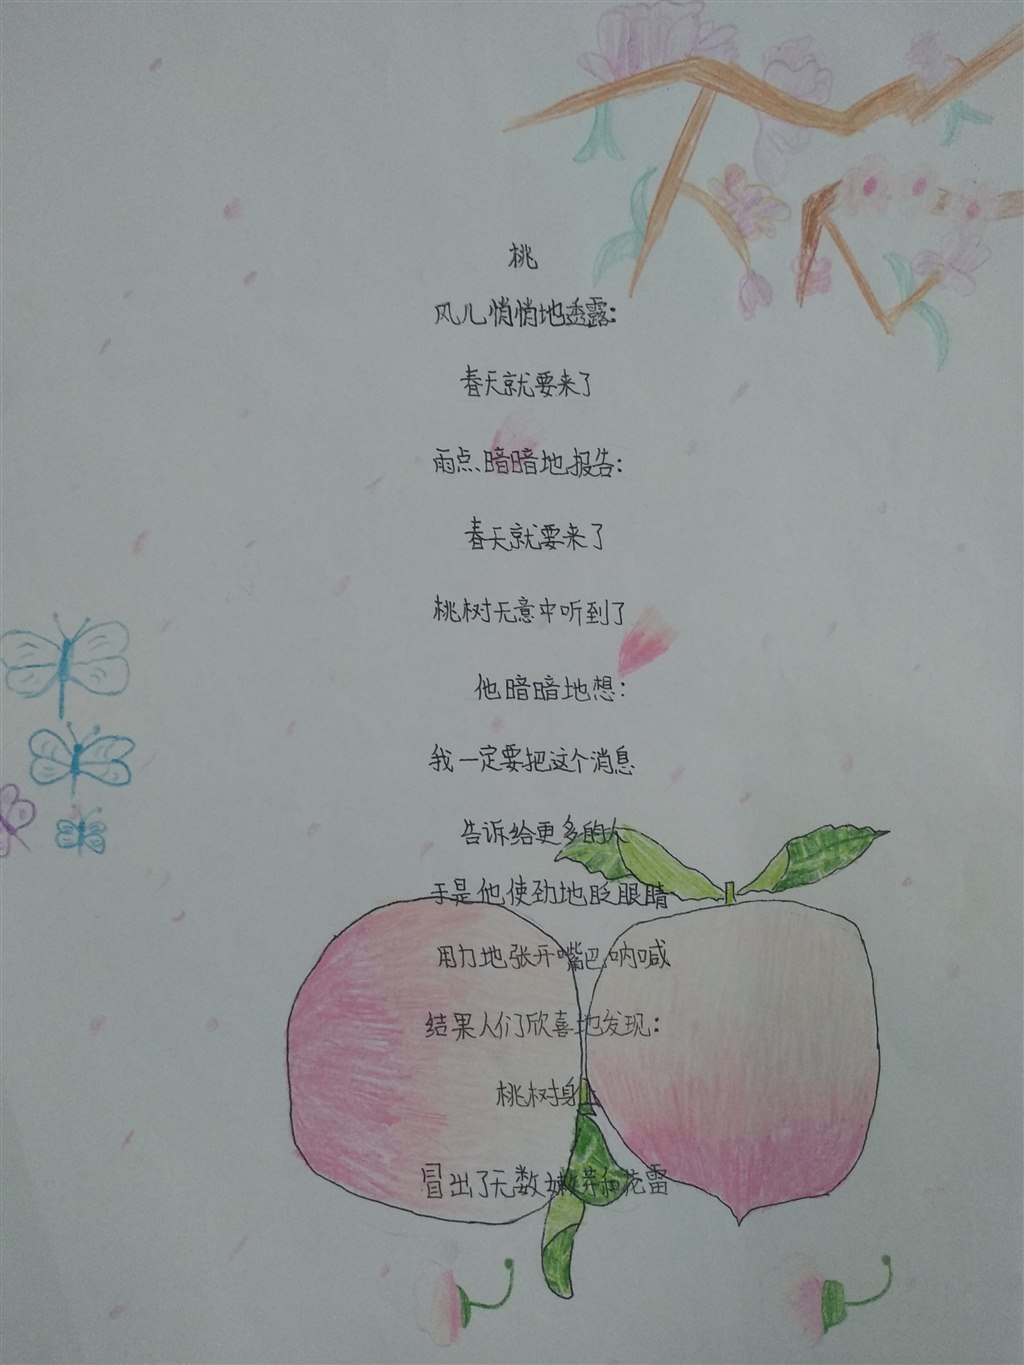 桃
风儿悄悄地透露：
春天就要来了
雨点、暗暗地报告：
春天就要来了
桃树无意中听到了
他暗暗地想：
我一定要把这个消息
告诉给更多的人
于是他使劲地眨眼睛
用力地张开嘴巴呐喊
结果人们欣喜地发现：
桃树身上
冒出了无数嫩芽和花雷